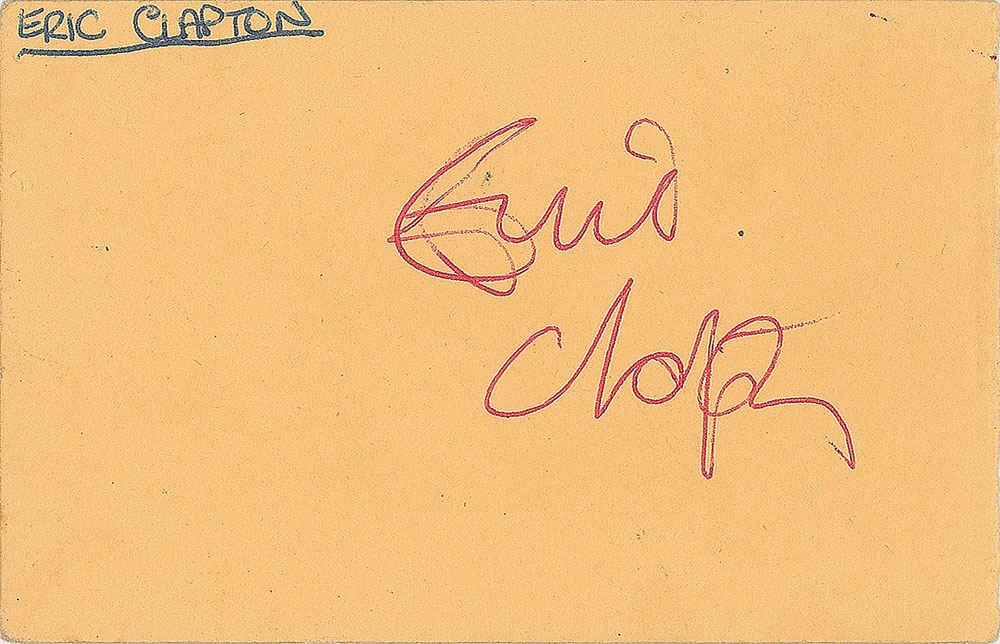 ERIC CLAPTON
Eric
Clapton